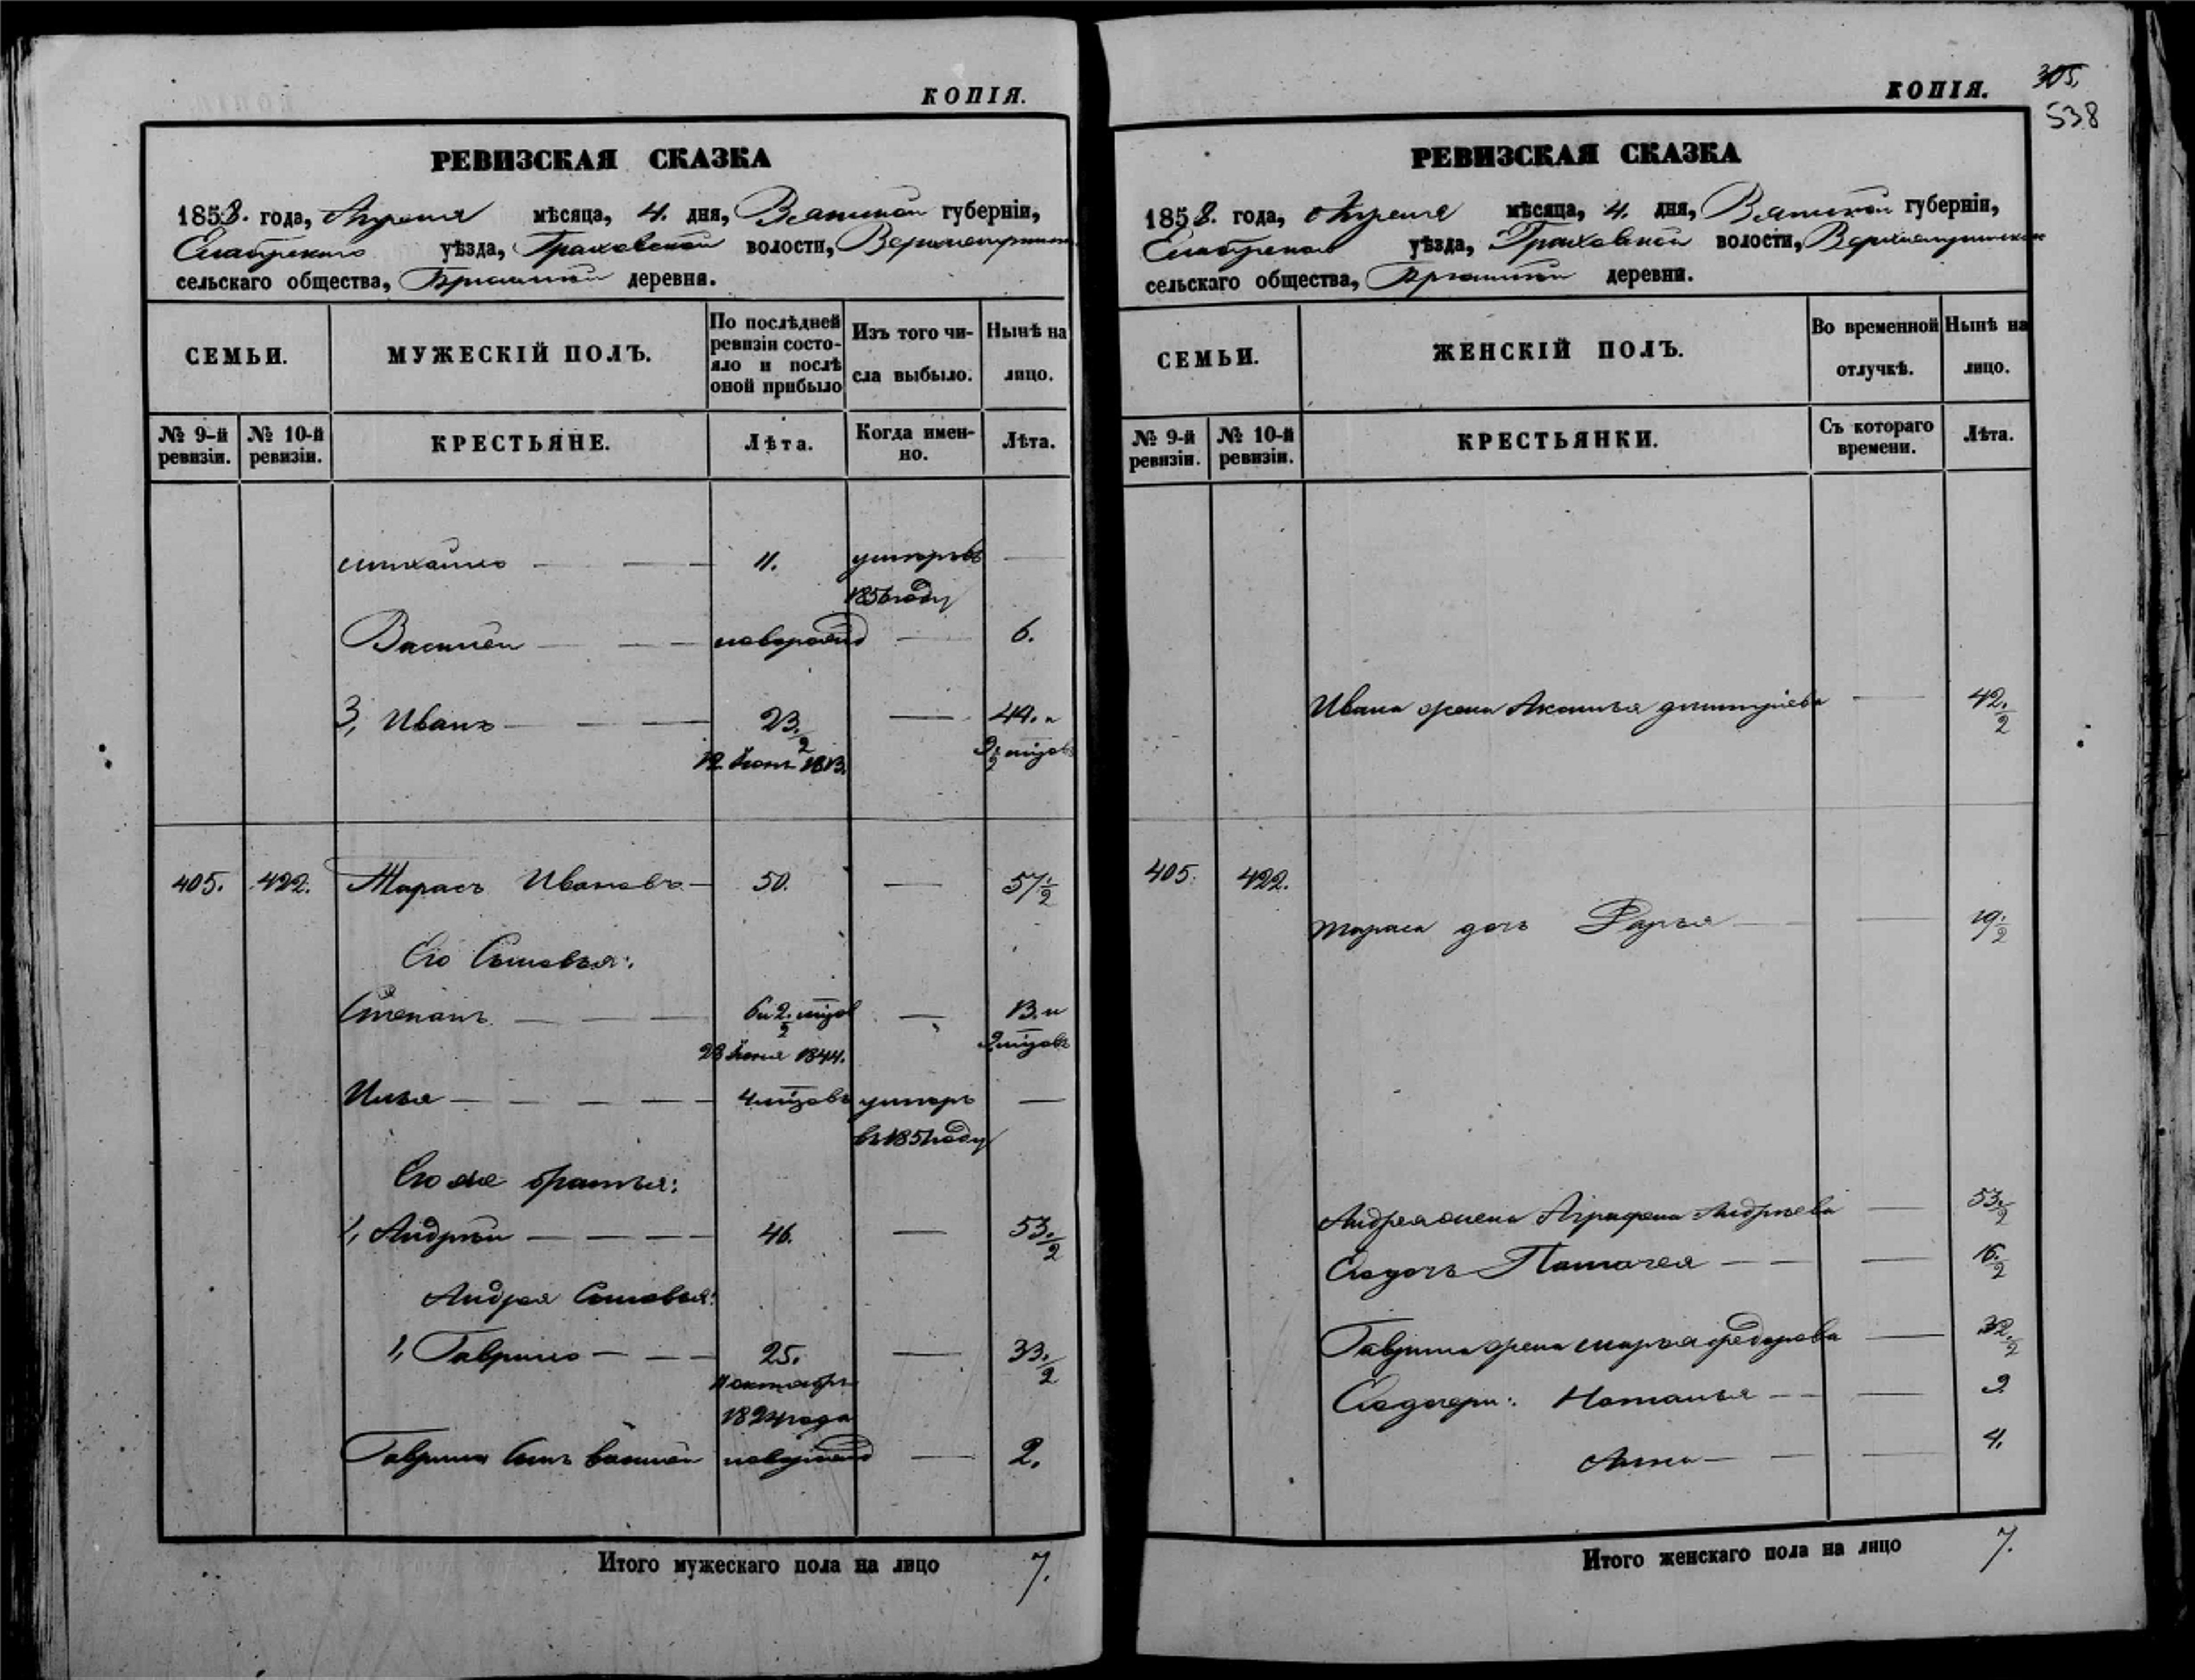 КОПІЯ.
РЕВИЗСКАЯ СКАЗКА
1858. года, Апреля мѣсяца, 4. дня, Вятской губерніи,
Елабужскаго уѣзда, Граховской волости,
сельскаго общества, деревни.
СЕМЬИ.
МУЖЕСКІЙ ПОЛЪ.
По послѣдней ревизіи состояло и послѣ оной прибыло
Изъ того числа выбыло.
Нынѣ на лицо.
№ 9-й ревизіи.
№ 10-й ревизіи.
КРЕСТЬЯНЕ.
Лѣта.
Когда именно.
Лѣта.
Михайло 11. умеръ въ
1856 году
Василей новорожд 6.
3, Иванъ 23. 44. и
405. 422. Тарасъ Ивановъ 50. 57 1/2
Его Сыновья:
Степанъ 13. и
1844.
Илья умеръ
въ 1851 году
Его же братья:
1, Андрей 46. 53. 1/2
Андрея Сыновья:
1, Гаврило 25. 33. 1/2
11 октябр
1824 года
Гаврила Сынъ Василей новорожд 2.
Итого мужескаго пола на лицо 7.
КОПІЯ.
305.
538
РЕВИЗСКАЯ СКАЗКА
1858. года, Апреля мѣсяца, 4. дня, Вятской губерніи,
уѣзда, Граховской волости,
сельскаго общества, деревни.
СЕМЬИ.
ЖЕНСКІЙ ПОЛЪ.
Во временной отлучкѣ.
Нынѣ на лицо.
№ 9-й ревизіи.
№ 10-й ревизіи.
КРЕСТЬЯНКИ.
Съ котораго времени.
Лѣта.
Ивана жена Аксинья 42. 1/2
405. 422.
Тараса дочь Дарья 19. 1/2
Андрея жена Аграфена Андреева 53. 1/2
Его дочь Палагея 16. 1/2
Гаврила жена Марья Федорова 32. 1/2
Его дочери: Наталья 9
Анна 4.
Итого женскаго пола на лицо 7.